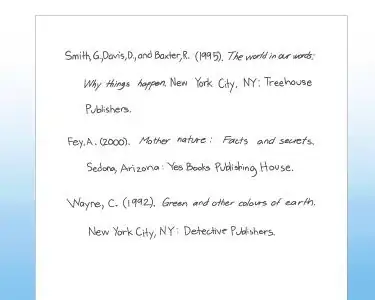 Smith, G., Davis, D., and Baxter, R. (1995). The world in our words:
Why things happen. New York City, NY: Treehouse
Publishers.
Fey, A. (2000). Mother nature: Facts and secrets.
Sedona, Arizona: Yes Books Publishing House.
Wayne, C. (1992). Green and other colours of earth.
New York City, NY: Detective Publishers.